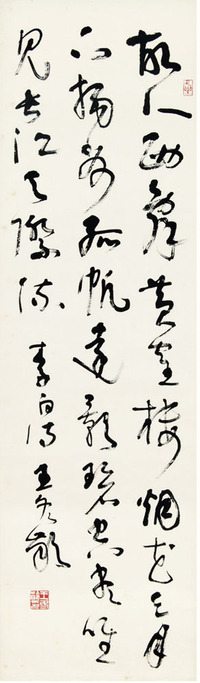 故人西辞黄鹤楼烟花三月
下扬州孤帆远影碧空尽唯
见长江天际流 李白诗 王冬龄